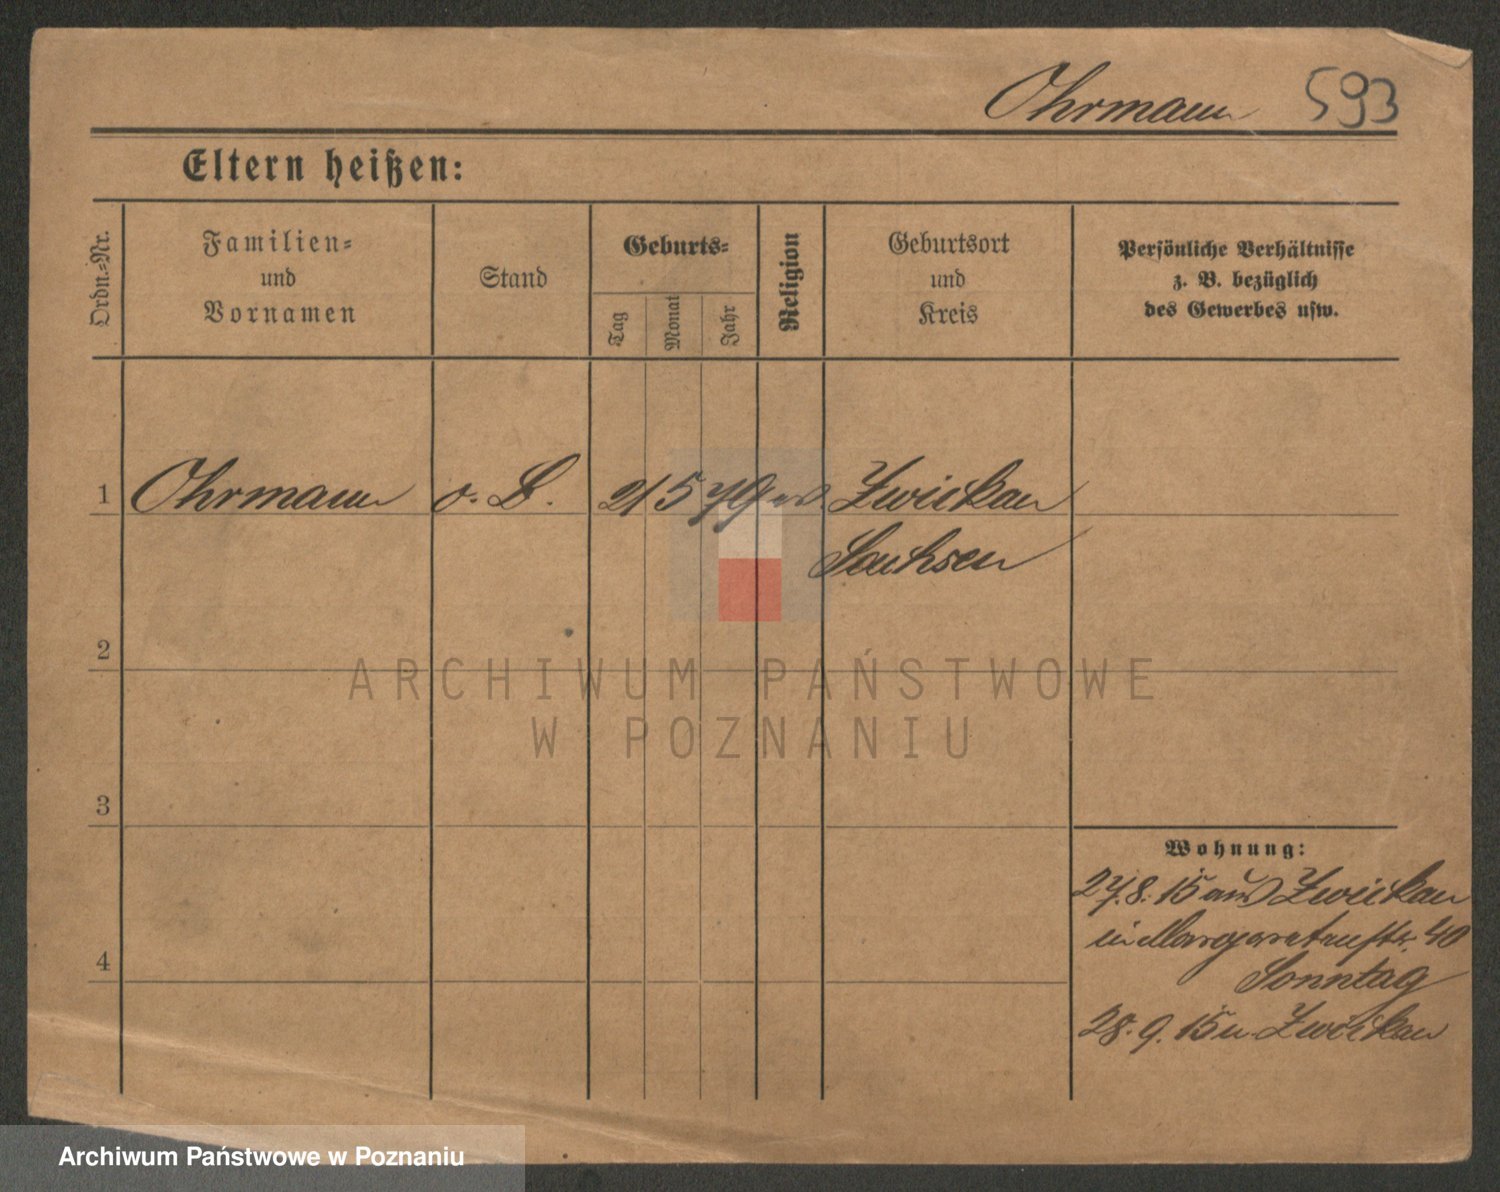 Ohrmann 593
Eltern heißen:
Ordn.=Nr.
Familien=
und
Vornamen
Stand
Geburts=
Tag
Monat
Jahr
Religion
Geburtsort
und
Kreis
Persönliche Verhältnisse
z. B. bezüglich
des Gewerbes usw.
1 Ohrmann o. B. 21 5 79 Zwickau
Sachsen
2
3
4
Wohnung:
27.8.15 aus Zwickau
in Margaretenstr. 40
Sonntag
28.9.15 n. Zwickau
ARCHIWUM PAŃSTWOWE
W POZNANIU
Archiwum Państwowe w Poznaniu